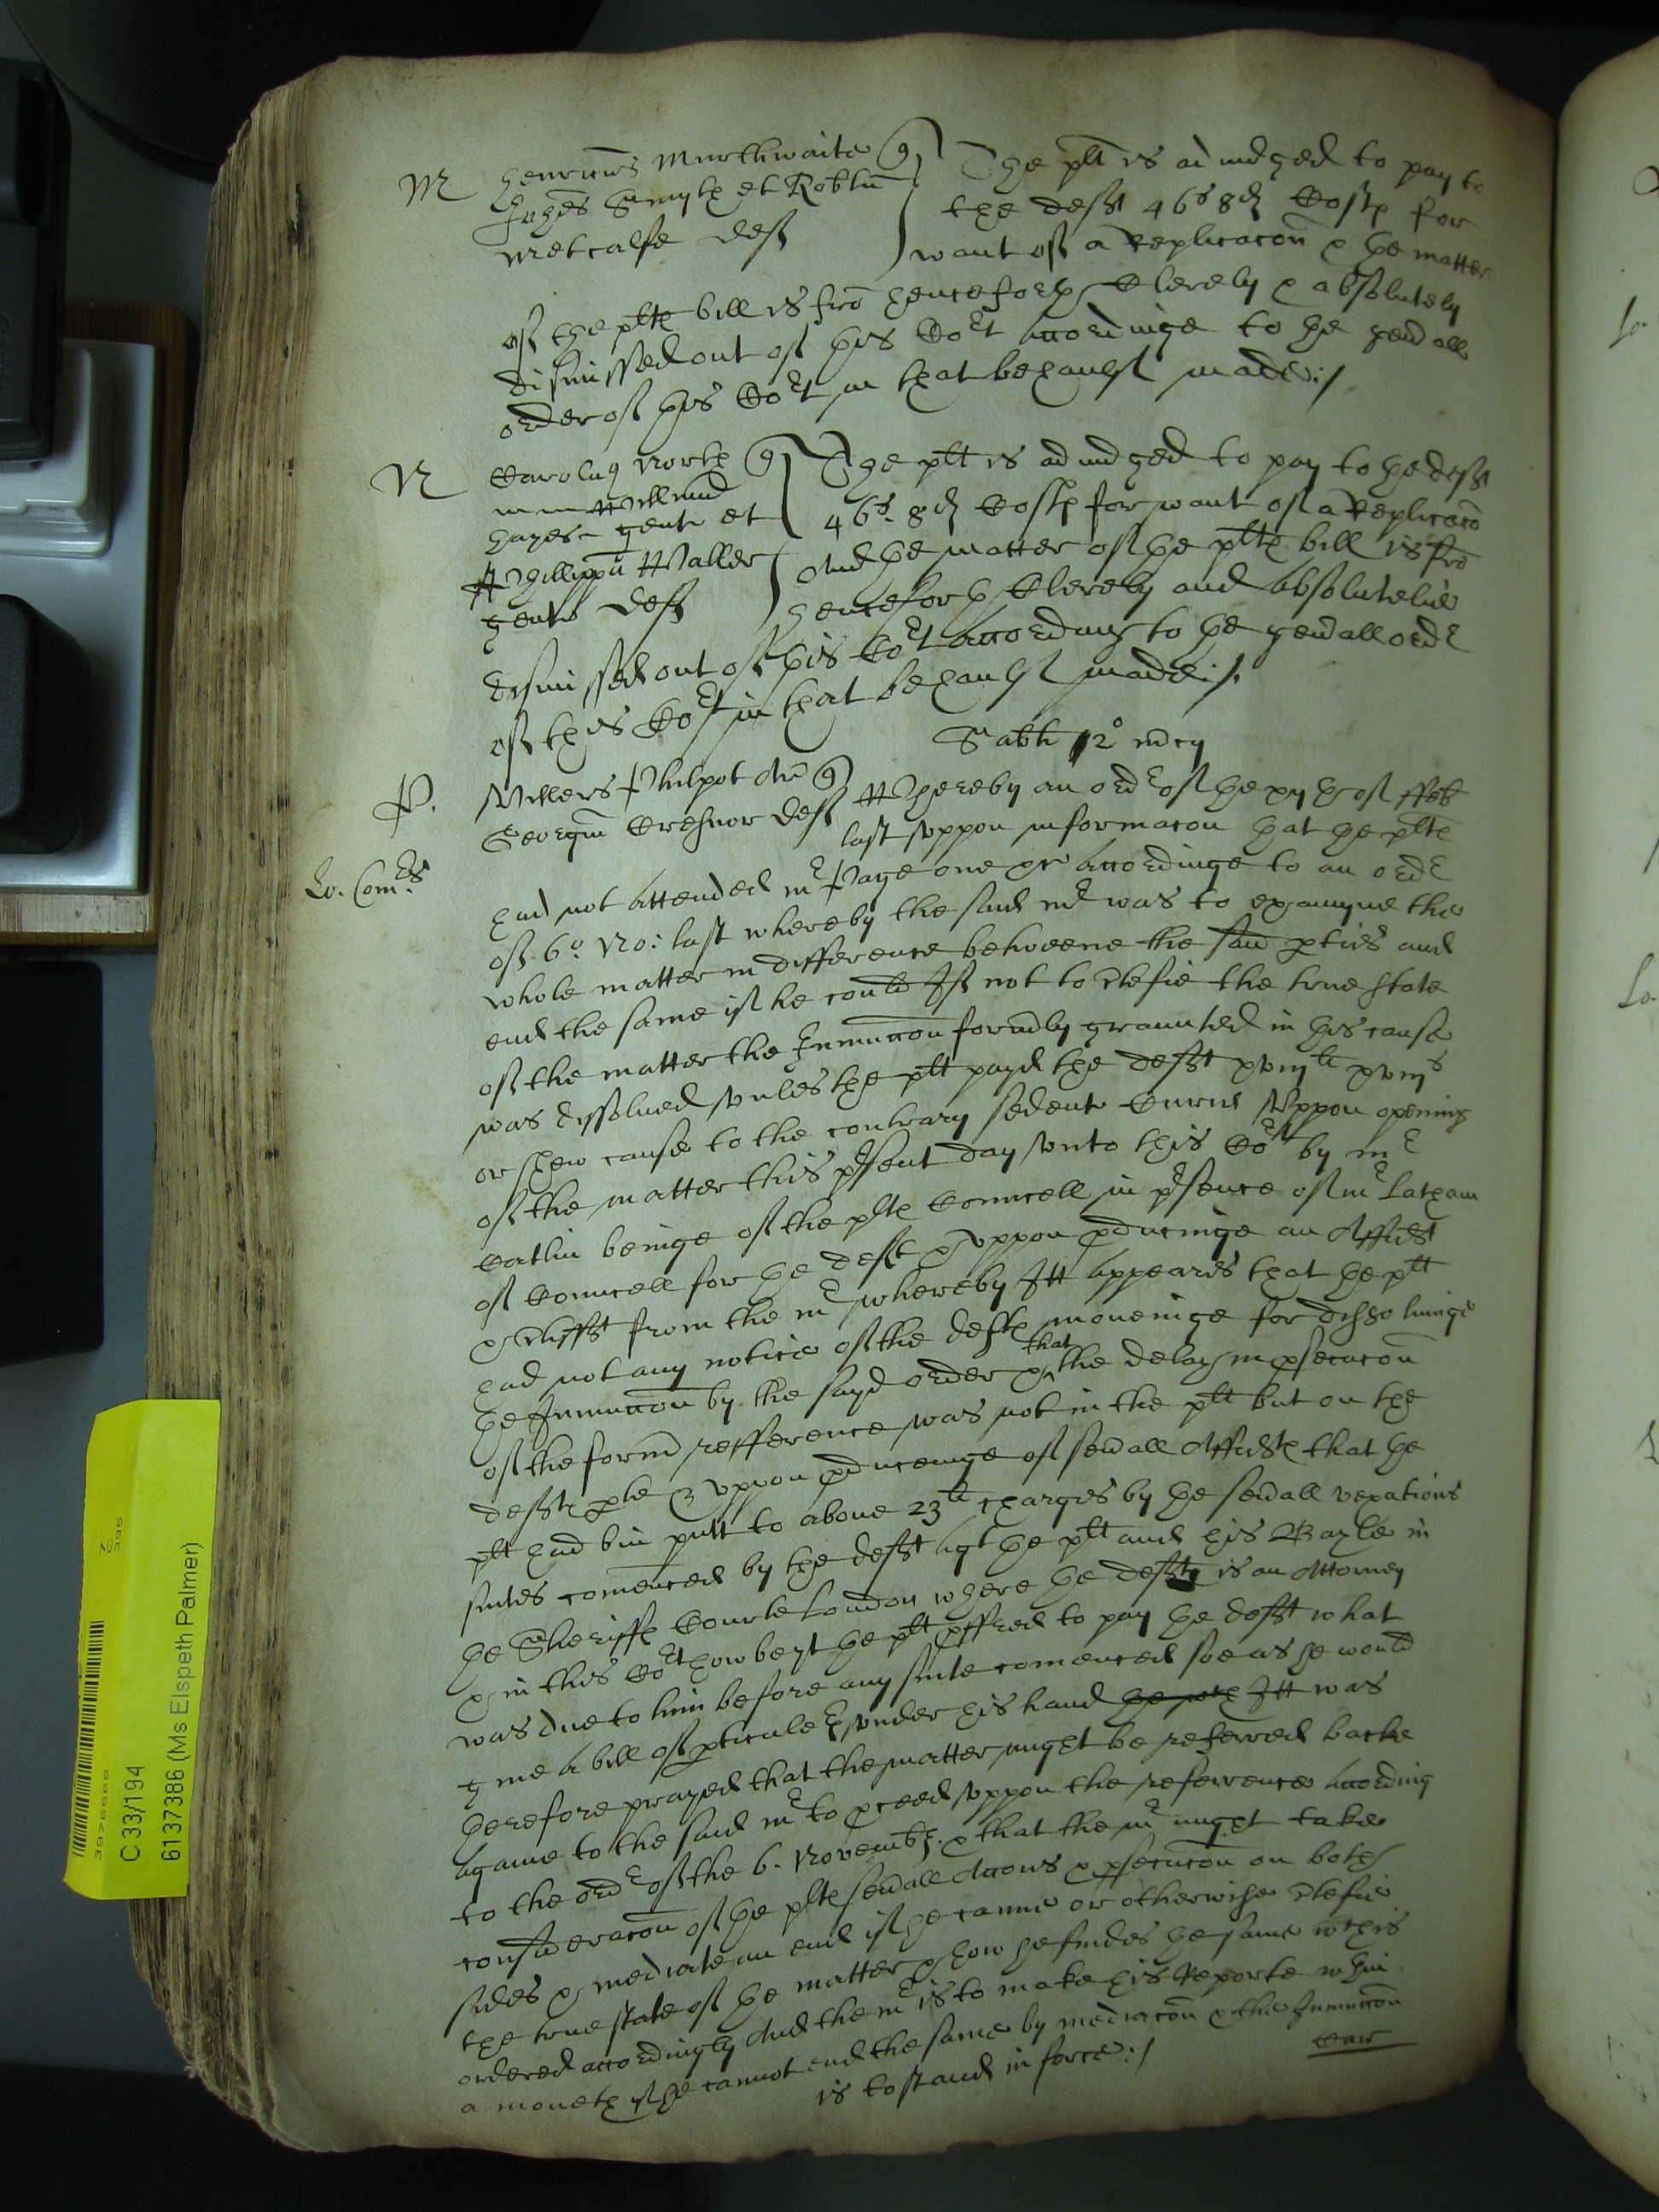 M Henricus Murthwaite q
Johes Smyth et Robtu
Metcalfe def
The plt is adiudged to pay to
the deft 46s 8d Costs for
want of a Replicacon & the matter
of the plts bill is fro henceforth Clerely & absolutely
dismissed out of this Cort accordinge to the genrall
order of this Cort in that behaulf made:/
N Carolus North q
Willmu
Hayes gent et
Phillippu Waller
gent def
The plt is adiudged to pay to the deft
46s. 8d Costs for want of a Replicaco
And the matter of the plts bill is fro
henceforth Clerely and absolutelie
dismissed out of this Cort according to the genrall ordr
of this Cort in that behaulf made:/.
Sabti 12o
P. Willers Philpot Ar q
Georgiu Gresnor def
Whereby an ordr of the of ffeb
last vppon informacon that the plte
Lo. Comrs
had not attended mr Page one &c accordinge to an ordr
of 6o No: last whereby the said mr was to examyne the
whole matter in difference betweene the said pties and
end the same if he could If not to Certefie the true state
of the matter the Iniunccon formrly graunted in this cause
was dissolued vnles the plt payd the deft xviijli xviijs
or shew cause to the contrary sedente Curia Vppon opening
of the matter this prsent day vnto this Cort by mr
Catlin beinge of the plts Councell in prsence of mr Latham
of Councell for the deft & vppon pducinge an Affidt
& Certifft from the mr whereby Itt appeares that the plt
had not any notice of the defts moueinge for dissoluinge
the Iniunccon by the sayd order & that the delay in psecucon
of the formr refference was not in the plt but on the
defts pte & vppon pduceinge of seuall Affidts that the
plt had bin putt to aboue 23li charges by the seuall vexatious
suites comenced by the deft agt the plt and his Bayle in
the Sheriffs Courte London where the deft is an Attorney
& in this Cort howbeyt the plt offred to pay the deft what
was due to him before any suite comenced soe as he would
giue a bill of pticulers vnder his hand Itt was
therefore prayed that the matter might be referred backe
againe to the said mr to pceed vppon the referrence according
to the ordr of the 6. Novembr. & that the mr might take
consideracon of the plts seuall Accons & psecucon on both
sides & mediate an end if he canne or otherwise Certefie
the true state of the matter & how he findes the same wch is
ordered accordingly And the mr is to make his Reporte wthin
a moneth if he cannot end the same by mediacon & the Iniunccon
is to stand in force:/
3976568
C 33/194
6137386 (Ms Elspeth Palmer)